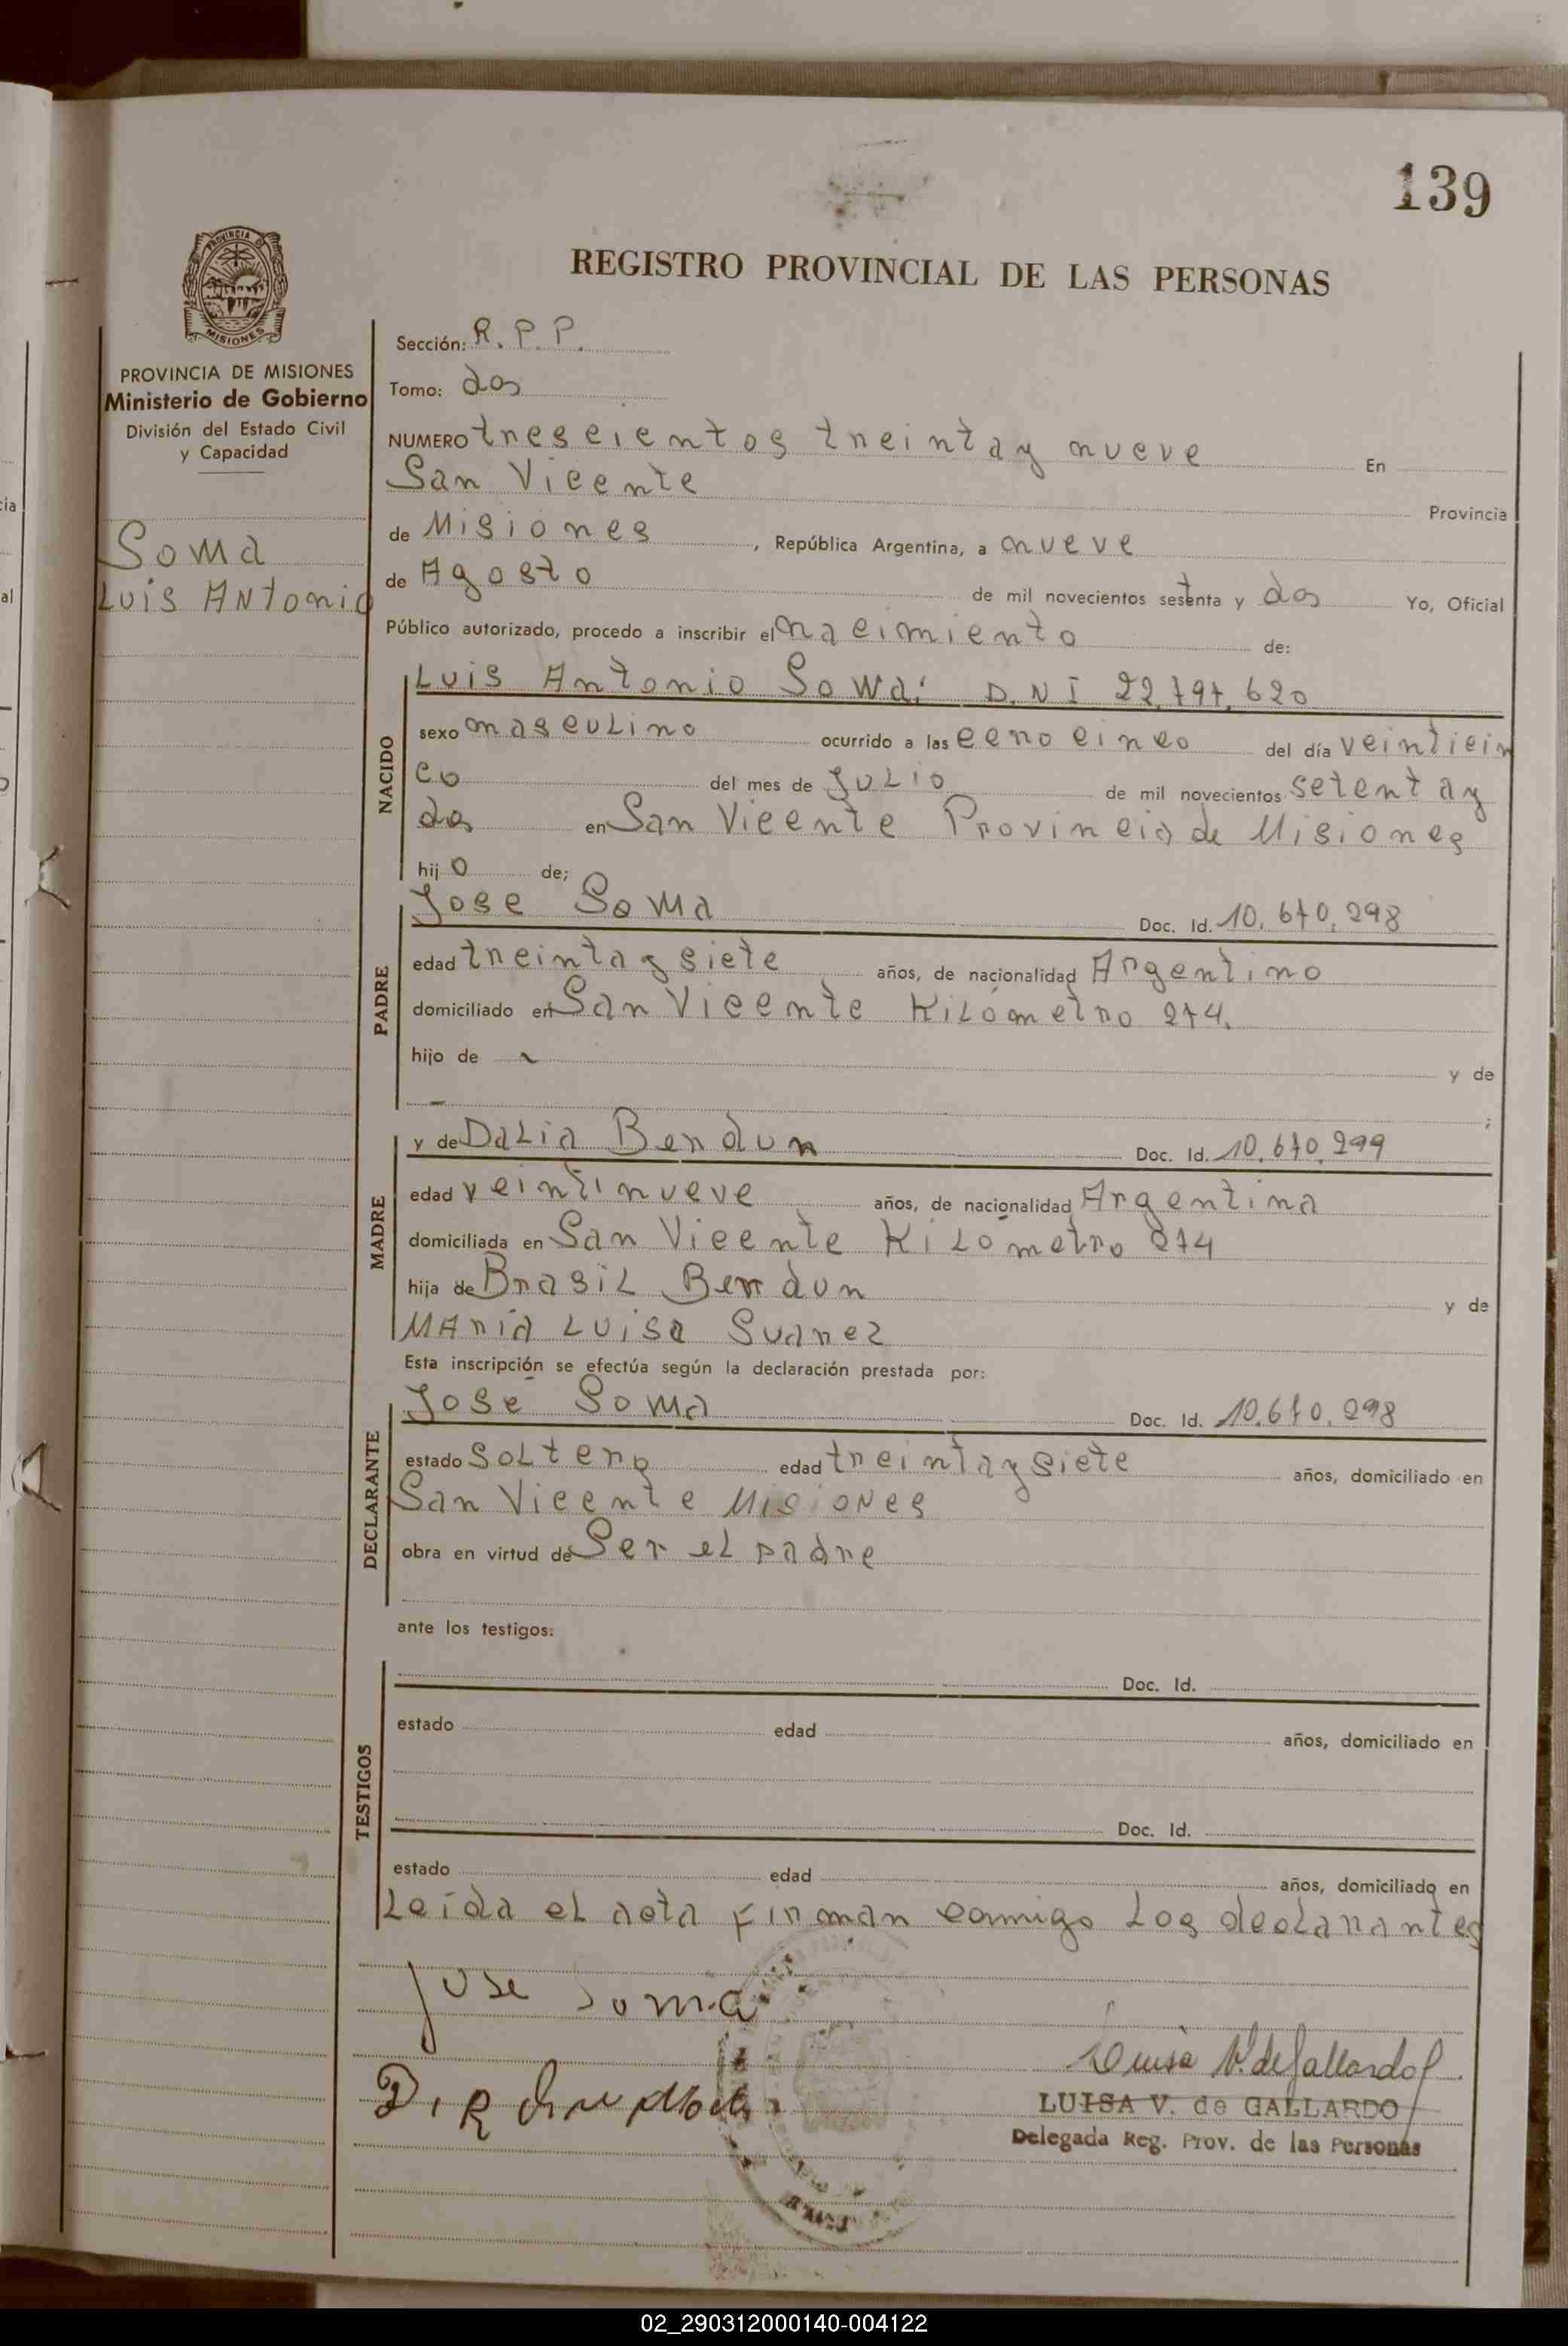 139
REGISTRO PROVINCIAL DE LAS PERSONAS
PROVINCIA DE
MISIONES
PROVINCIA DE MISIONES
Ministerio de Gobierno
División del Estado Civil
y Capacidad
Soma
Luis Antonio
Sección: R.P.P.
Tomo: dos
NUMERO trescientos treinta y nueve En
San Vicente Provincia
de Misiones, República Argentina, a nueve
de Agosto de mil novecientos setenta y dos Yo, Oficial
Público autorizado, procedo a inscribir el nacimiento de:
NACIDO
Luis Antonio Soma: D.N.I 22.797.620
sexo masculino ocurrido a las cero cinco del día veinticin
co del mes de Julio de mil novecientos setenta y
dos en San Vicente Provincia de Misiones
hijo de;
PADRE
Jose Soma Doc. Id. 10.670.298
edad treinta y siete años, de nacionalidad Argentino
domiciliado en San Vicente Kilómetro 274.
hijo de - y de
- ;
MADRE
y de Dalia Bendun Doc. Id. 10.670.299
edad veintinueve años, de nacionalidad Argentina
domiciliada en San Vicente Kilómetro 274
hija de Brasil Bendun y de
María Luisa Suarez
Esta inscripción se efectúa según la declaración prestada por:
DECLARANTE
José Soma Doc. Id. 10.670.298
estado soltero edad treinta y siete años, domiciliado en
San Vicente Misiones
obra en virtud de Ser el padre
ante los testigos:
TESTIGOS
Doc. Id.
estado edad años, domiciliado en
Doc. Id.
estado edad años, domiciliado en
Leída el acta firman conmigo los declarantes
Jose Soma
Luisa V. de Gallardo
LUISA V. de GALLARDO
Delegada Reg. Prov. de las Personas
02_290312000140-004122